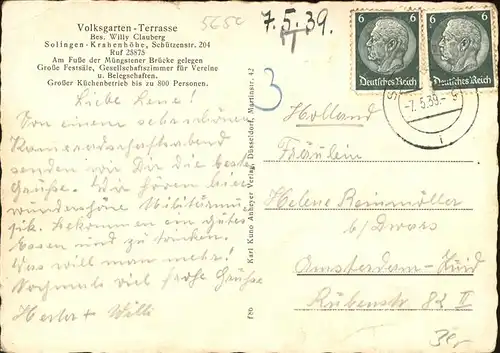 Volksgarten-Terrasse
Bes. Willy Clauberg
Solingen-Krahenhöhe, Schützenstr. 204
Ruf 25875
Am Fuße der Müngstener Brücke gelegen
Große Festsäle, Gesellschaftszimmer für Vereine
u. Belegschaften.
Großer Küchenbetrieb bis zu 800 Personen.
5650
7.5.39.
6 6
Deutsches Reich Deutsches Reich
-7.5.39-
3
Liebe Lene!
Von einem sehr schönen
Kameradschaftsabend
senden wir Dir die besten
Grüsse. Wir hören hier
wunderschöne Militärmu-
sik. Bekommen ein gutes
Essen und zu trinken.
Was will man mehr!
Nochmals viel frohe Grüsse
Herta + Willi
Karl Kuno Anbeyer Verlag, Düsseldorf, Martinstr. 42
Holland
Fräulein
Helene Reinmöller
b/
Amsterdam-Zuid
Rubenstr. 82 II